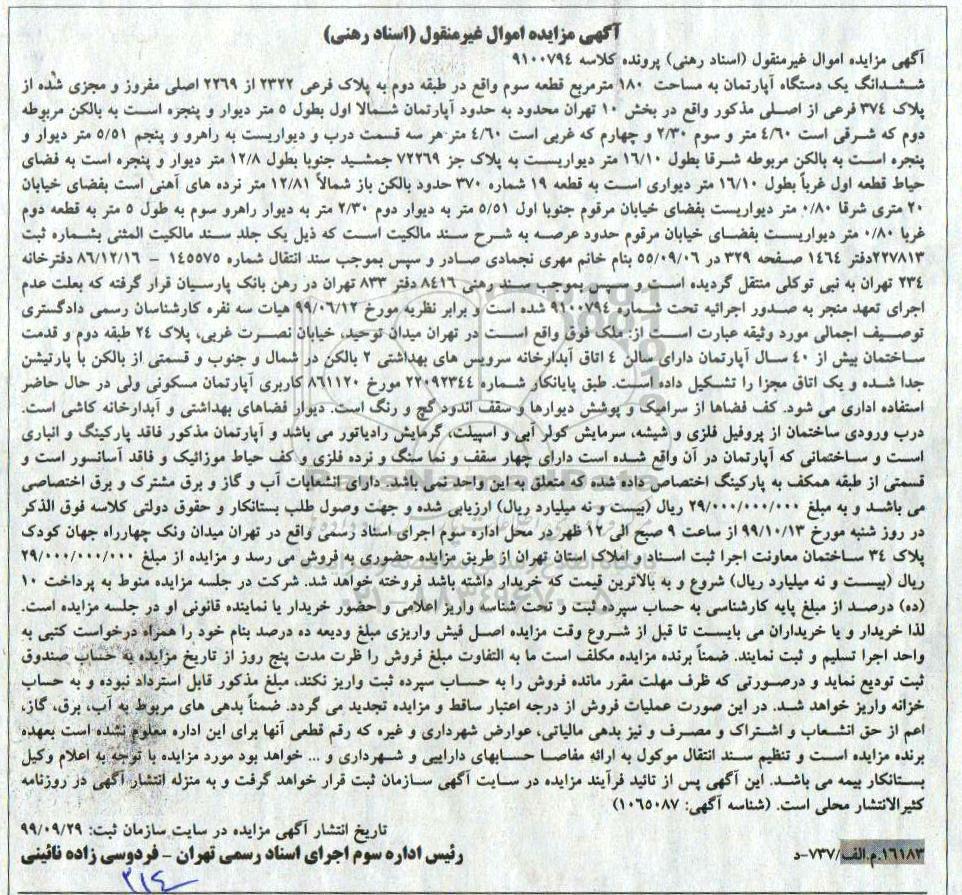 آگهی مزایده اموال غیرمنقول (اسناد رهنی)
آگهی مزایده اموال غیرمنقول (اسناد رهنی) پرونده کلاسه ۹۱۰۰۷۹۴
ششدانگ یک دستگاه آپارتمان به مساحت ۱۸۰ مترمربع قطعه سوم واقع در طبقه دوم به پلاک فرعی ۲۳۲۲ از ۲۲۶۹ اصلی مفروز و مجزی شده از
پلاک ۳۷۴ فرعی از اصلی مذکور واقع در بخش ۱۰ تهران محدود به حدود آپارتمان شمالا اول بطول ۵ متر دیوار و پنجره است به بالکن مربوطه
دوم که شرقی است ۴/۶۰ متر و سوم ۲/۳۰ و چهارم که غربی است ۴/۶۰ متر هر سه قسمت درب و دیواریست به راهرو و پنجم ۵/۵۱ متر دیوار و
پنجره است به بالکن مربوطه شرقا بطول ۱۶/۱۰ متر دیواریست به پلاک جز ۷۲۲۶۹ جمشید جنوبا بطول ۱۲/۸ متر دیوار و پنجره است به فضای
حیاط قطعه اول غرباً بطول ۱۶/۱۰ متر دیواری است به قطعه ۱۹ شماره ۳۷۰ حدود بالکن باز شمالاً ۱۲/۸۱ متر نرده های آهنی است بفضای خیابان
۲۰ متری شرقا ۰/۸۰ متر دیواریست بفضای خیابان مرقوم جنوبا اول ۵/۵۱ متر به دیوار دوم ۲/۳۰ متر به دیوار راهرو سوم به طول ۵ متر به قطعه دوم
غربا ۰/۸۰ متر دیواریست بفضای خیابان مرقوم حدود عرصه به شرح سند مالکیت است که ذیل یک جلد سند مالکیت المثنی بشماره ثبت
۲۲۷۸۱۳دفتر ۱۴۶۴ صفحه ۳۲۹ در ۵۵/۰۹/۰۶ بنام خانم مهری نجمادی صادر و سپس بموجب سند انتقال شماره ۱۴۵۵۷۵ – ۸۶/۱۲/۱۶ دفترخانه
۲۳۴ تهران به نبی توکلی منتقل گردیده است و سپس بموجب سند رهنی ۸۴۱۶ دفتر ۸۳۳ تهران در رهن بانک پارسیان قرار گرفته که بعلت عدم
اجرای تعهد منجر به صدور اجرائیه تحت شماره ۹۱۰۰۷۹۴ شده است و برابر نظریه مورخ ۹۹/۰۶/۱۲ هیات سه نفره کارشناسان رسمی دادگستری
توصیف اجمالی مورد وثیقه عبارت است از: ملک فوق واقع است در تهران میدان توحید، خیابان نصرت غربی، پلاک ۲۴ طبقه دوم و قدمت
ساختمان بیش از ۴۰ سال آپارتمان دارای سالن ۴ اتاق آبدارخانه سرویس های بهداشتی ۲ بالکن در شمال و جنوب و قسمتی از بالکن با پارتیشن
جدا شده و یک اتاق مجزا را تشکیل داده است. طبق پایانکار شماره ۲۲۰۹۲۳۴۴ مورخ ۸۶۱۱۲۰ کاربری آپارتمان مسکونی ولی در حال حاضر
استفاده اداری می شود. کف فضاها از سرامیک و پوشش دیوارها و سقف اندود گچ و رنگ است. دیوار فضاهای بهداشتی و آبدارخانه کاشی است.
درب ورودی ساختمان از پروفیل فلزی و شیشه، سرمایش کولر آبی و اسپیلت، گرمایش رادیاتور می باشد و آپارتمان مذکور فاقد پارکینگ و انباری
است و ساختمانی که آپارتمان در آن واقع شده است دارای چهار سقف و نما سنگ و نرده فلزی و کف حیاط موزائیک و فاقد آسانسور است و
قسمتی از طبقه همکف به پارکینگ اختصاص داده شده که متعلق به این واحد نمی باشد. دارای انشعابات آب و گاز و برق مشترک و برق اختصاصی
می باشد و به مبلغ ۲۹/۰۰۰/۰۰۰/۰۰۰ ریال (بیست و نه میلیارد ریال) ارزیابی شده و جهت وصول طلب بستانکار و حقوق دولتی کلاسه فوق الذکر
در روز شنبه مورخ ۹۹/۱۰/۱۳ از ساعت ۹ صبح الی ۱۲ ظهر در محل اداره سوم اجرای اسناد رسمی واقع در تهران میدان ونک چهارراه جهان کودک
پلاک ۳۴ ساختمان معاونت اجرا ثبت اسناد و املاک استان تهران از طریق مزایده حضوری به فروش می رسد و مزایده از مبلغ ۲۹/۰۰۰/۰۰۰/۰۰۰
ریال (بیست و نه میلیارد ریال) شروع و به بالاترین قیمت که خریدار داشته باشد فروخته خواهد شد. شرکت در جلسه مزایده منوط به پرداخت ۱۰
(ده) درصد از مبلغ پایه کارشناسی به حساب سپرده ثبت و تحت شناسه واریز اعلامی و حضور خریدار یا نماینده قانونی او در جلسه مزایده است.
لذا خریدار و یا خریداران می بایست تا قبل از شروع وقت مزایده اصل فیش واریزی مبلغ ودیعه ده درصد بنام خود را همراه درخواست کتبی به
واحد اجرا تسلیم و ثبت نمایند. ضمناً برنده مزایده مکلف است ما به التفاوت مبلغ فروش را ظرت مدت پنج روز از تاریخ مزایده به حساب صندوق
ثبت تودیع نماید و درصورتی که ظرف مهلت مقرر مانده فروش را به حساب سپرده ثبت واریز نکند، مبلغ مذکور قابل استرداد نبوده و به حساب
خزانه واریز خواهد شد. در این صورت عملیات فروش از درجه اعتبار ساقط و مزایده تجدید می گردد. ضمناً بدهی های مربوط به آب، برق، گاز،
اعم از حق انشعاب و اشتراک و مصرف و نیز بدهی مالیاتی، عوارض شهرداری و غیره که رقم قطعی آنها برای این اداره معلوم نشده است بعهده
برنده مزایده است و تنظیم سند انتقال موکول به ارائه مفاصا حسابهای دارایی و شهرداری و ... خواهد بود مورد مزایده با توجه به اعلام وکیل
بستانکار بیمه می باشد. این آگهی پس از تائید فرآیند مزایده در سایت آگهی سازمان ثبت قرار خواهد گرفت و به منزله انتشار آگهی در روزنامه
کثیرالانتشار محلی است. (شناسه آگهی: ۱۰۶۵۰۸۷)
تاریخ انتشار آگهی مزایده در سایت سازمان ثبت: ۹۹/۰۹/۲۹
رئیس اداره سوم اجرای اسناد رسمی تهران – فردوسی زاده نائینی
۱۶۱۸۳.م.الف/۷۳۷-د
۳۱۴